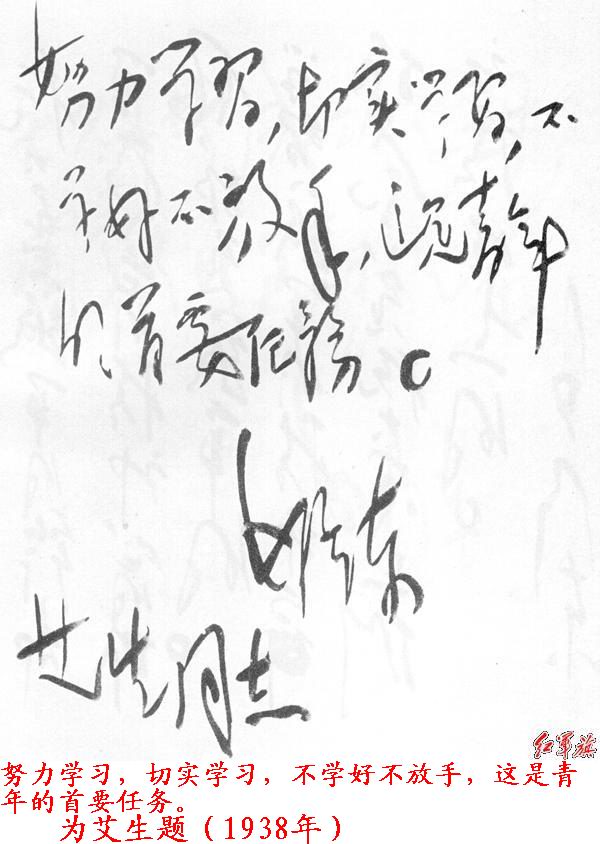 努力学習，切实学習，不
学好不放手，这是青年
的首要任務。
艾生同志
红军旗
努力学习，切实学习，不学好不放手，这是青
年的首要任务。
为艾生题（1938年）